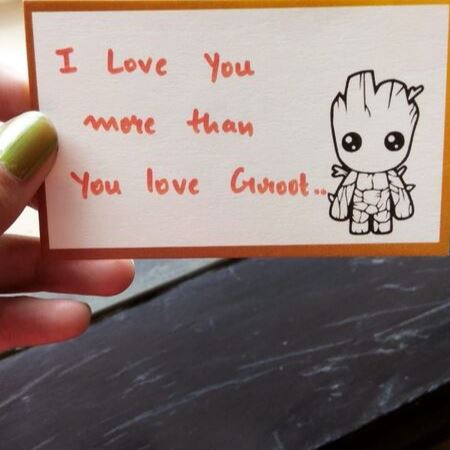 I Love You
more than
You love Groot..